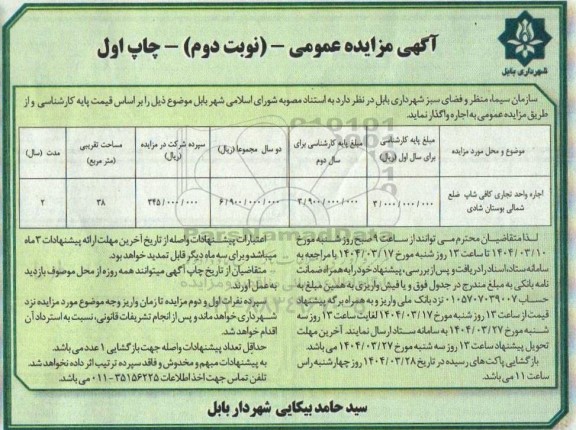 شهرداری بابل
آگهی مزایده عمومی – (نوبت دوم) – چاپ اول
سازمان سیما، منظر و فضای سبز شهرداری بابل در نظر دارد به استناد مصوبه شورای اسلامی شهر بابل موضوع ذیل را بر اساس قیمت پایه کارشناسی و از
طریق مزایده عمومی به اجاره واگذار نماید.
موضوع و محل مورد مزایده
مبلغ پایه کارشناسی برای سال اول (ریال)
مبلغ پایه کارشناسی برای سال دوم
دو سال مجموعا (ریال)
سپرده شرکت در مزایده (ریال)
مساحت تقریبی (متر مربع)
مدت (سال)
اجاره واحد تجاری کافی شاپ ضلع شمالی بوستان شادی
۳/۰۰۰/۰۰۰/۰۰۰
۳/۹۰۰/۰۰۰/۰۰۰
۶/۹۰۰/۰۰۰/۰۰۰
۳۴۵/۰۰۰/۰۰۰
۳۸
۲
لذا متقاضیان محترم می توانند از ساعت ۹ صبح روز شنبه مورخ
۱۴۰۴/۰۳/۱۰ تا ساعت ۱۳ روز شنبه مورخ ۱۴۰۴/۰۳/۱۷ با مراجعه به
سامانه ستاد، اسناد را دریافت و پس از بررسی، پیشنهاد خود را به همراه ضمانت
نامه بانکی به مبلغ مندرج در جدول فوق و یا فیش واریزی به همین مبلغ به
حساب ۰۱۰۵۷۰۷۰۳۹۰۰۷ نزد بانک ملی واریز و به همراه برگه پیشنهاد
قیمت از ساعت ۱۳ روز شنبه مورخ ۱۴۰۴/۰۳/۱۷ لغایت ساعت ۱۳ روز سه
شنبه مورخ ۱۴۰۴/۰۳/۲۷ به سامانه ستاد ارسال نمایند. آخرین مهلت
تحویل پیشنهاد ساعت ۱۳ روز سه شنبه مورخ ۱۴۰۴/۰۳/۲۷ می باشد.
بازگشایی پاکت های رسیده در تاریخ ۱۴۰۴/۰۳/۲۸ روز چهارشنبه راس
ساعت ۱۱ می باشد.
اعتبارات پیشنهادات واصله از تاریخ آخرین مهلت ارائه پیشنهادات ۳ ماه
میباشد و برای سه ماه دیگر قابل تمدید خواهد بود.
متقاضیان از تاریخ چاپ آگهی میتوانند همه روزه از محل موصوف بازدید
به عمل آورند.
سپرده نفرات اول و دوم مزایده تا زمان واریز وجه موضوع مورد مزایده نزد
شهرداری خواهد ماند و پس از انجام تشریفات قانونی، نسبت به استرداد آن
اقدام خواهد شد.
حداقل تعداد پیشنهادات واصله جهت بازگشایی ۱ عدد می باشد.
به پیشنهادات مبهم و مخدوش و فاقد سپرده ترتیب اثر داده نخواهد شد.
تلفن تماس جهت اخذ اطلاعات ۳۵۱۵۶۲۲۵-۰۱۱ می باشد.
سید حامد بیکایی شهردار بابل
ParsNamadData